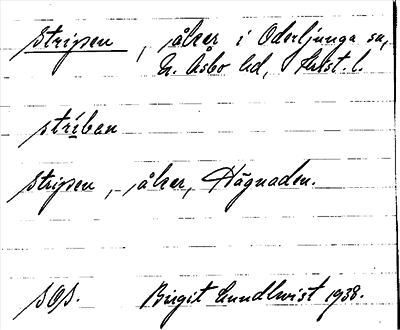 stripen, åker i Oderljunga sn,
N. Åsbo hd, Krist. l.
stríban
stripen, – åker, Hägnaden.
SOS. Birgit Lundkvist 1938.